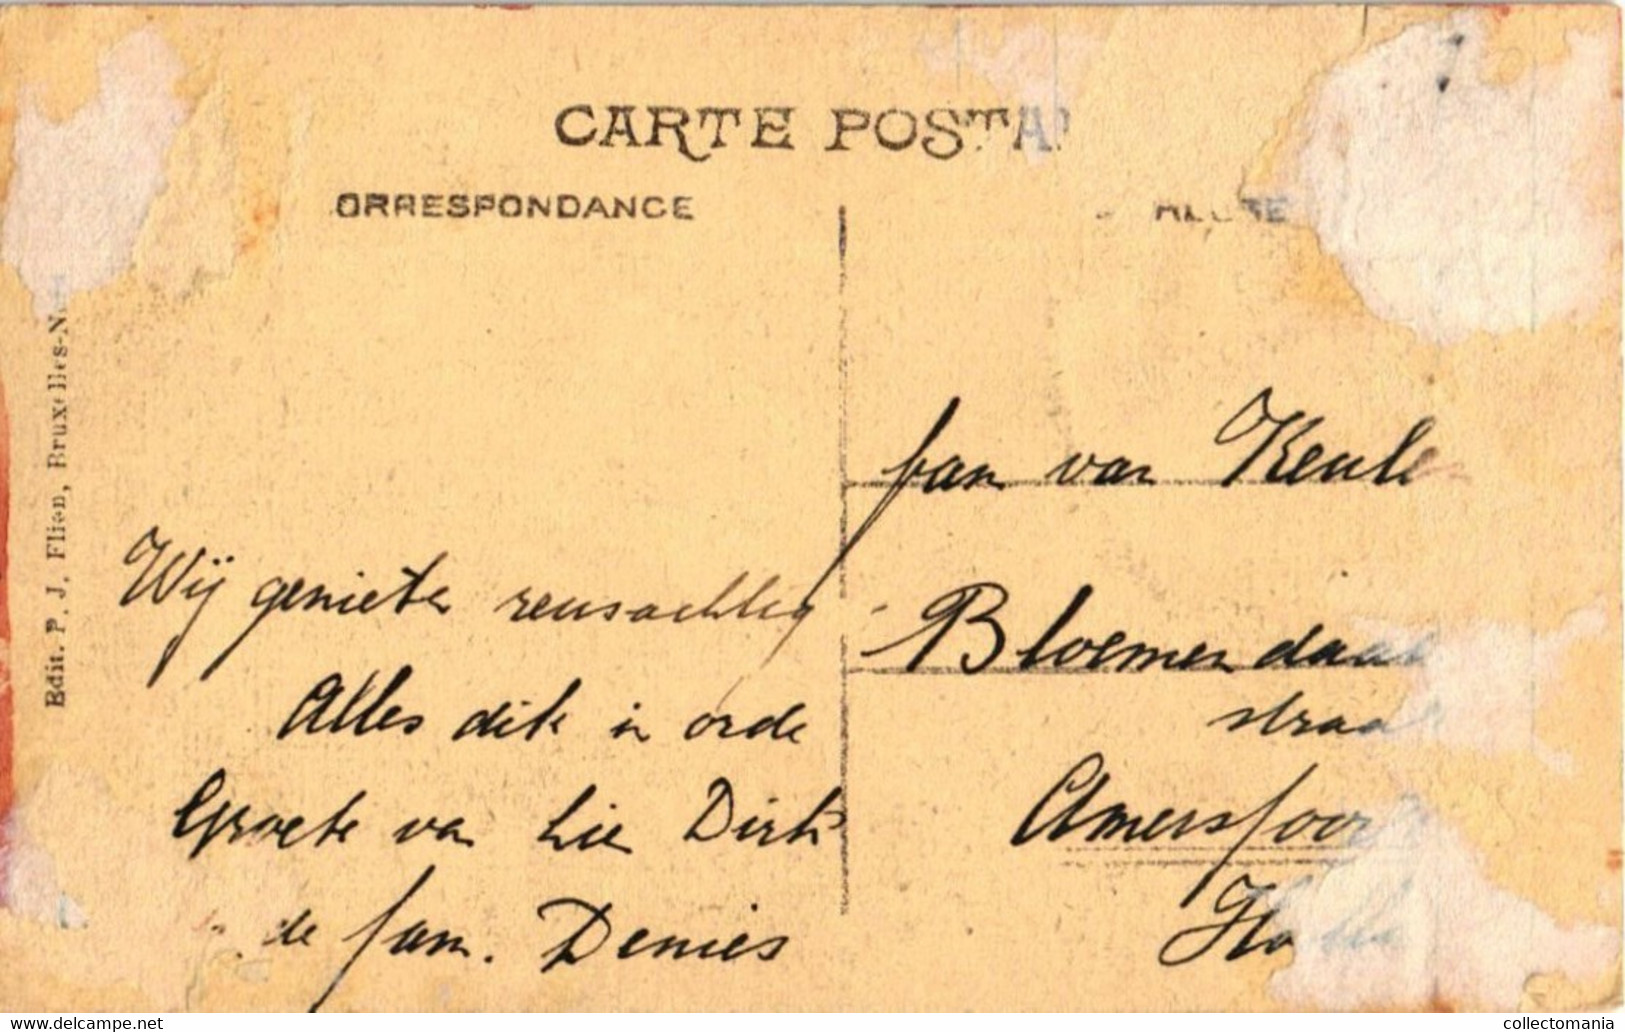 CARTE POSTA
ORRESPONDANCE
Edit. P. J. Flion, Bruxelles-N
Wij genieten reusachtig
Alles dik in orde
Groete van Lie Dirk
de fam. Denies
fam van Keule
Bloemendaal
straa
Amersfoor
Ho
www.delcampe.net
collectomania